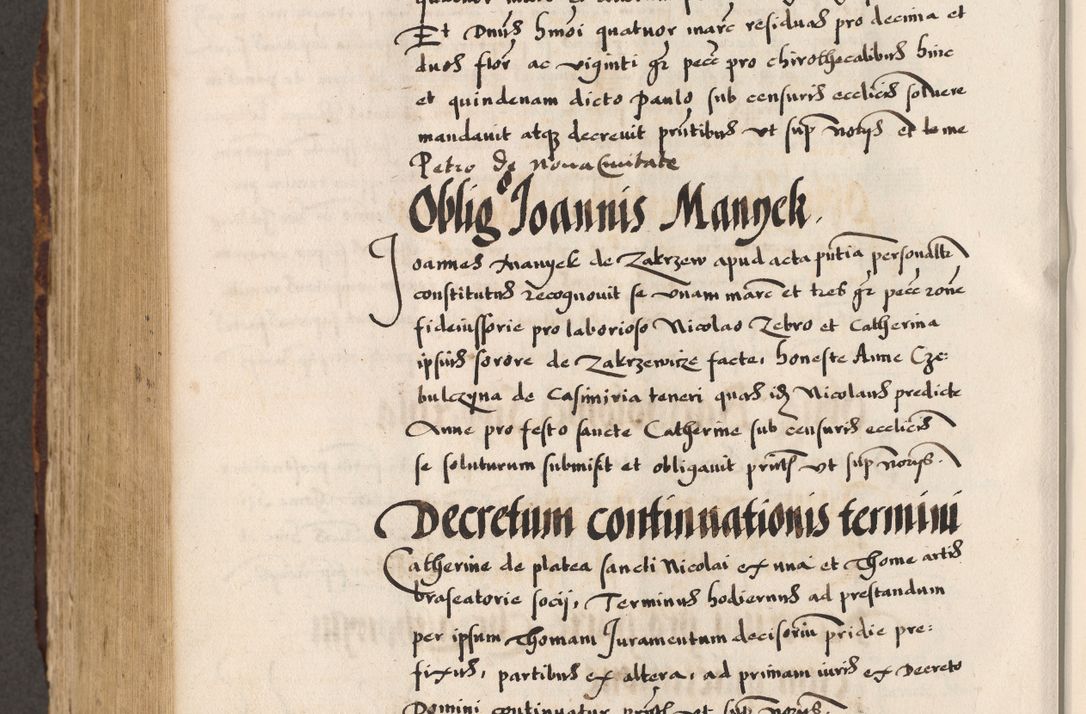 Et Dnus hmoi quatuor marc residuas pro decima et
duos flor ac viginti gr pecc pro chirothecalibus hinc
et quindenam dicto Paulo sub censuris ecclicis solvere
mandavit atq decrevit pntibus ut sup notijs et me
Petro de Nova Civitate
Oblig Joannis Manyek.
Joannes Manyek de Zakrzew apud acta pntia personaltr
constitutus recognovit se unam marc et tres gr pecc rone
fideiussorie pro laborioso Nicolao Zebro et Catherina
ipsius sorore de Zakrzewicze facte, honeste Anne Cze:
bulczyna de Casimiria teneri quas idz Nicolaus predicte
Anne pro festo sancte Catherine sub censuris ecclicis
se soluturum submisit et obligavit pntibs ut sup notijs.
Decretum continuationis termini
Catherine de platea sancti Nicolai ex una et Thome artis
braseatorie socij, Terminus hodiernus ad prestandum
per ipsum Thomam Juramentum decisoriu pridie pre:
fixus, partibus ex altera, ad primam iuris ex Decreto
Domini continuatur pntib ut sup notijs.